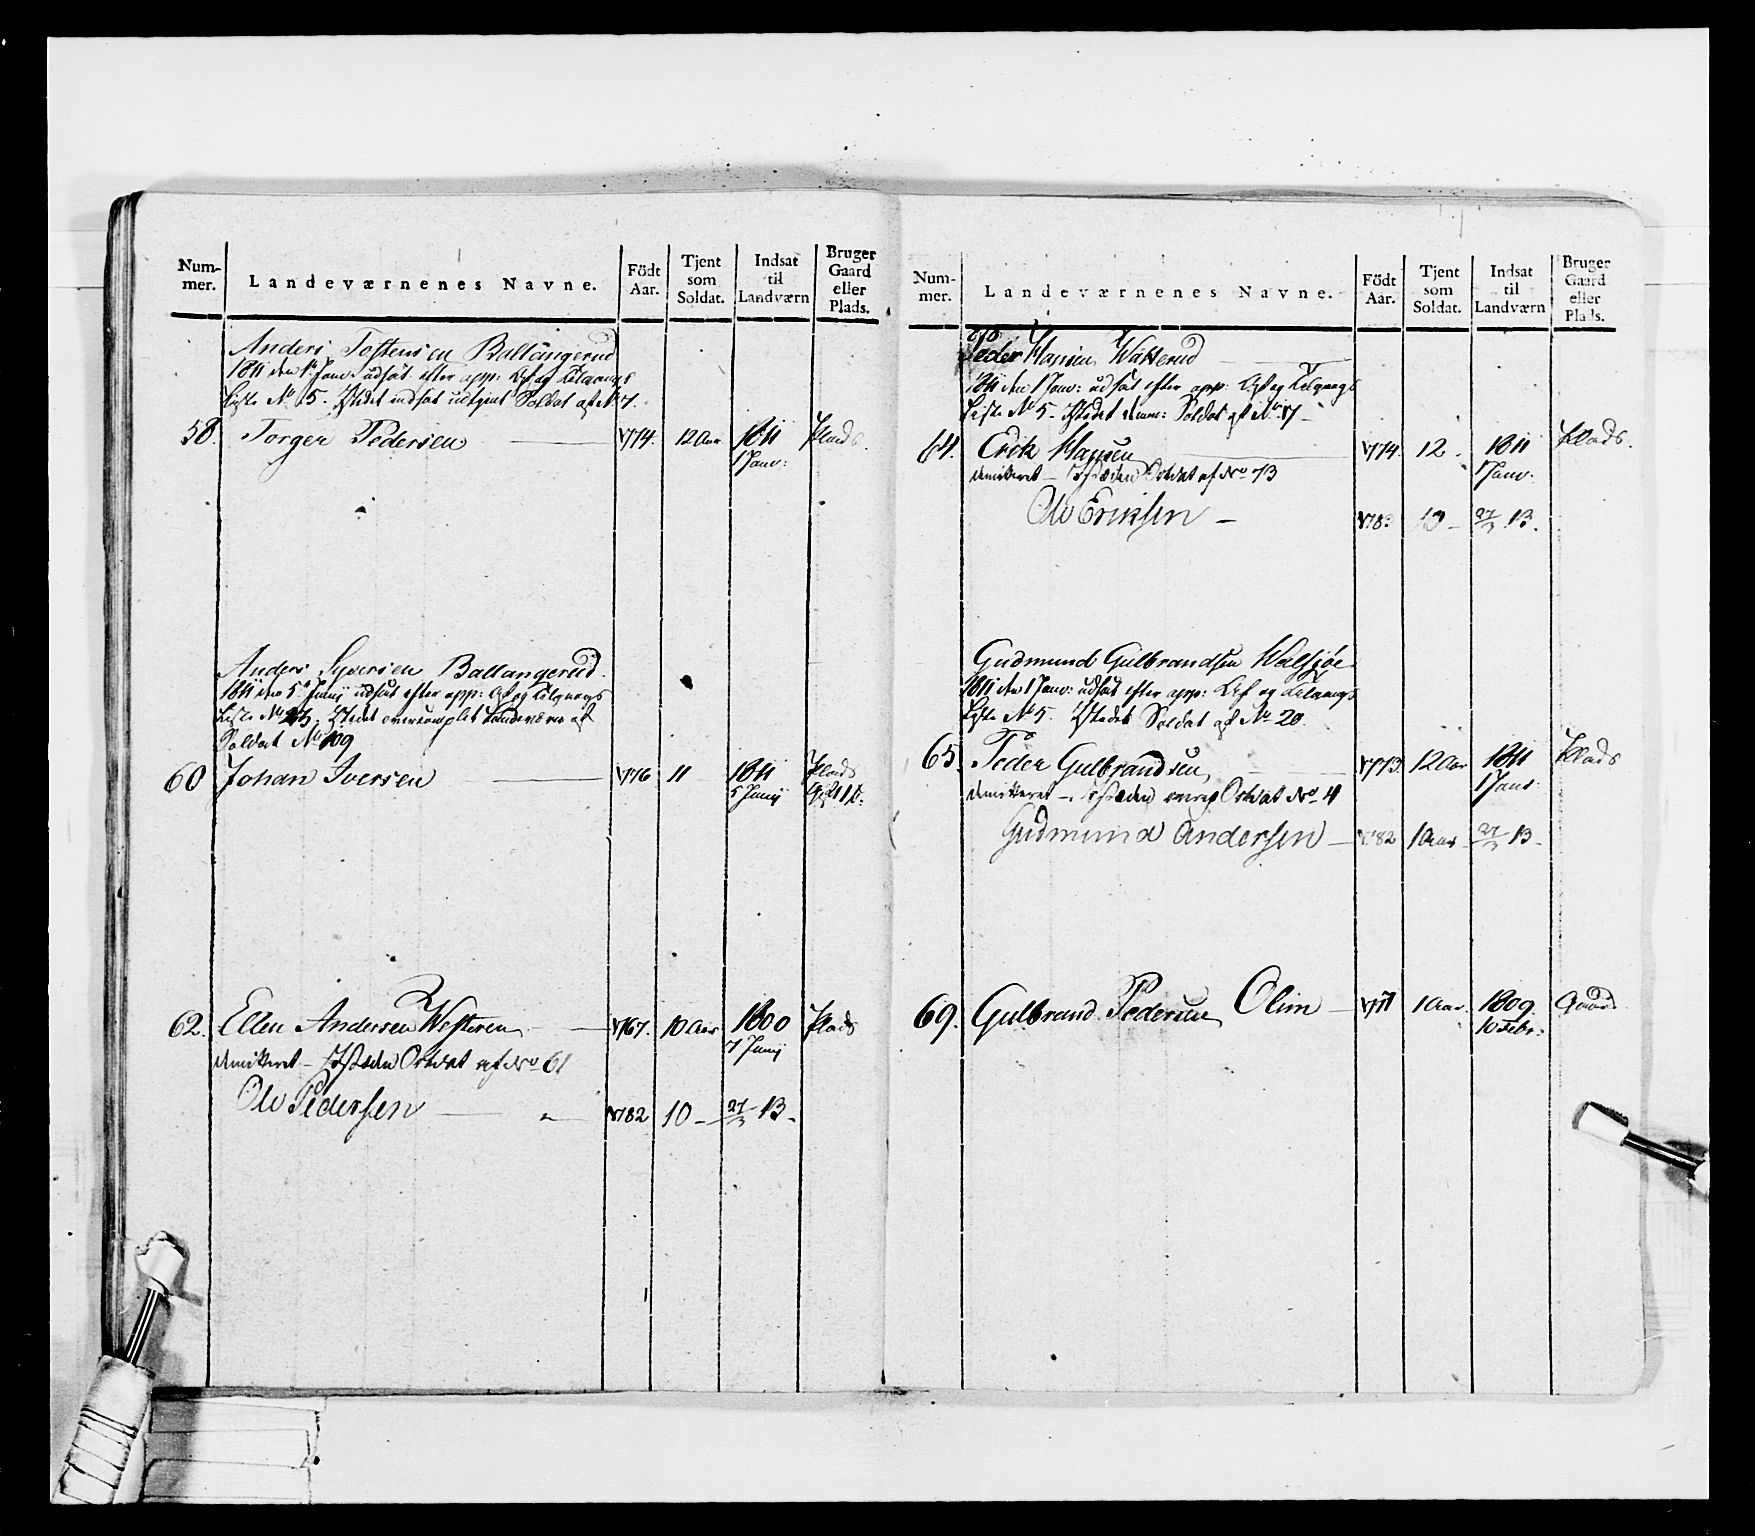 Num-
mer.
Landeværnenes Navne.
Födt
Aar.
Tjent
som
Soldat.
Indsat
til
Landværn
Bruger
Gaard
eller
Plads.
Anders Tostensen Ballangerud
1811 den 1 Janv: udsat efter app: Af og Tilgangs
Liste No 15. Istedet indsat udtjent Soldat af No 7.
58. Torger Pedersen 1774. 12 Aar 1811 Plads.
1 Janv:
Anders Syversen Ballangerud.
1811 den 5 Junij udsat efter app: Af og Tilgangs
Liste No 23. Istedet overcomplet Landeværn af
Soldat No 109
60 Johan Iversen 1776 11 1811 Plads
5 Junij
62. Ellen Andersen Westeren 1767. 10 Aar 1800 Plads
7 Junij
demitteret – Istæden Soldat af No 61
Ole Pedersen 1782 10 – 27/3 13.
Num-
mer.
Landeværnenes Navne.
Födt
Aar.
Tjent
som
Soldat.
Indsat
til
Landværn
Bruger
Gaard
eller
Plads.
Peder Hansen Watterud
1811 den 1 Janv: udsat efter app: Af og Tilgangs
Liste No 5. Istedet dem: Soldat af No 17 –
64. Erik Hansen 1774. 12. 1811 Plads.
1 Janv.
demitteret – Istæden Soldat af No 73
Ole Eriksen – 27/3 13.
Gudmund Gulbrandsen Walsjöe
1811 den 1 Janv: udsat efter app: Af og Tilgangs
Liste No 5. Istedet Soldat af No 20.
65. Peder Gulbrandsen 1773. 12 Aar 1811 Plads
1 Janv:
demitteret – Istæden Soldat No 4
Gudmund Andersen – 1782 10 Aar 27/3 13 –
69. Gulbrand Pedersen Olim – 1771 1 Aar. 1809. Gaard
10 Febr: